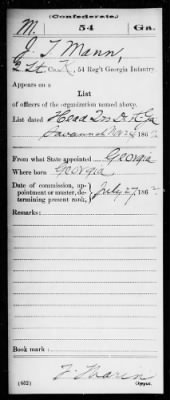 (Confederate.)
M. 54 Ga.
J. T. Mann,
2 Lt Co. K, 54 Reg't Georgia Infantry
Appears on a
List
of officers of the organization named above.
List dated Head Qrs D. of Ga
Savannah 186
From what State appointed Georgia
Where born Georgia
Date of commission, ap-
pointment or muster, de-
termining present rank,
July 27, 186
Remarks:
Book mark:
(652)
Copyist.